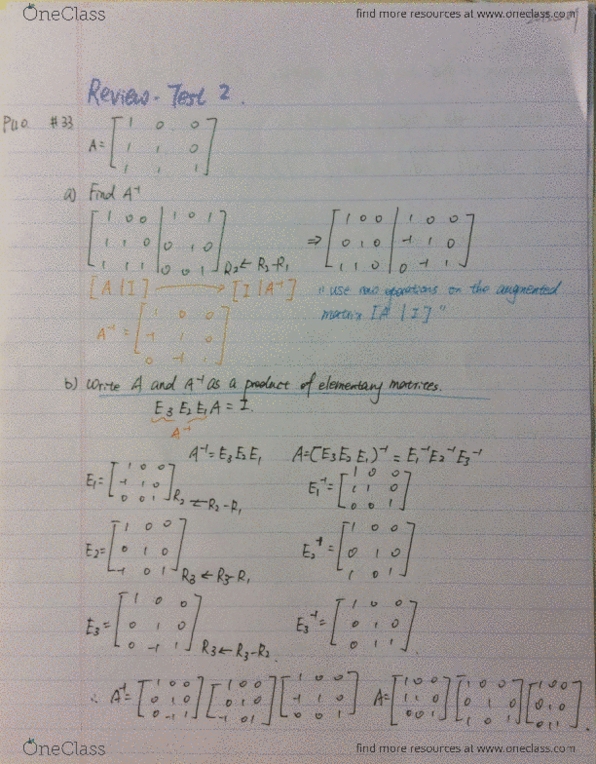 OneClass find more resources at www.oneclass.com
Review - Test 2.
P110 #33
A= [ 1 0 0
1 1 0
1 1 1 ]
a) Find A⁻¹
[ 1 0 0 | 1 0 1 ] ⇒ [ 1 0 0 | 1 0 0 ]
[ 1 1 0 | 0 1 0 ] [ 0 1 0 | -1 1 0 ]
[ 1 1 1 | 0 0 1 ] R2 ← R2-R1 [ 1 1 0 | 0 -1 1 ]
[A | I] → [I | A⁻¹] "use row operations on the augmented
matrix [A | I]"
A⁻¹ = [ 1 0 0
-1 1 0
0 -1 1 ]
b) Write A and A⁻¹ as a product of elementary matrices.
E3 E2 E1 A = I.
A⁻¹
A⁻¹=E3E2E1 A=(E3E2E1)⁻¹ = E1⁻¹E2⁻¹E3⁻¹
E1= [ 1 0 0 E1⁻¹= [ 1 0 0
-1 1 0 1 1 0
0 0 1 ] R2 ← R2-R1 0 0 1 ]
E2= [ 1 0 0 E2⁻¹= [ 1 0 0
0 1 0 0 1 0
-1 0 1 ] R3 ← R3-R1 1 0 1 ]
E3= [ 1 0 0 E3⁻¹= [ 1 0 0
0 1 0 0 1 0
0 -1 1 ] R3 ← R3-R2. 0 1 1 ].
∴ A⁻¹= [ 1 0 0 ] [ 1 0 0 ] [ 1 0 0 ] A= [ 1 0 0 ] [ 1 0 0 ] [ 1 0 0 ]
[ 0 1 0 ] [ 0 1 0 ] [ -1 1 0 ] [ 1 1 0 ] [ 0 1 0 ] [ 0 1 0 ]
[ 0 -1 1 ] [ -1 0 1 ] [ 0 0 1 ] [ 0 0 1 ] [ 1 0 1 ] [ 0 1 1 ].
OneClass find more resources at www.oneclass.com